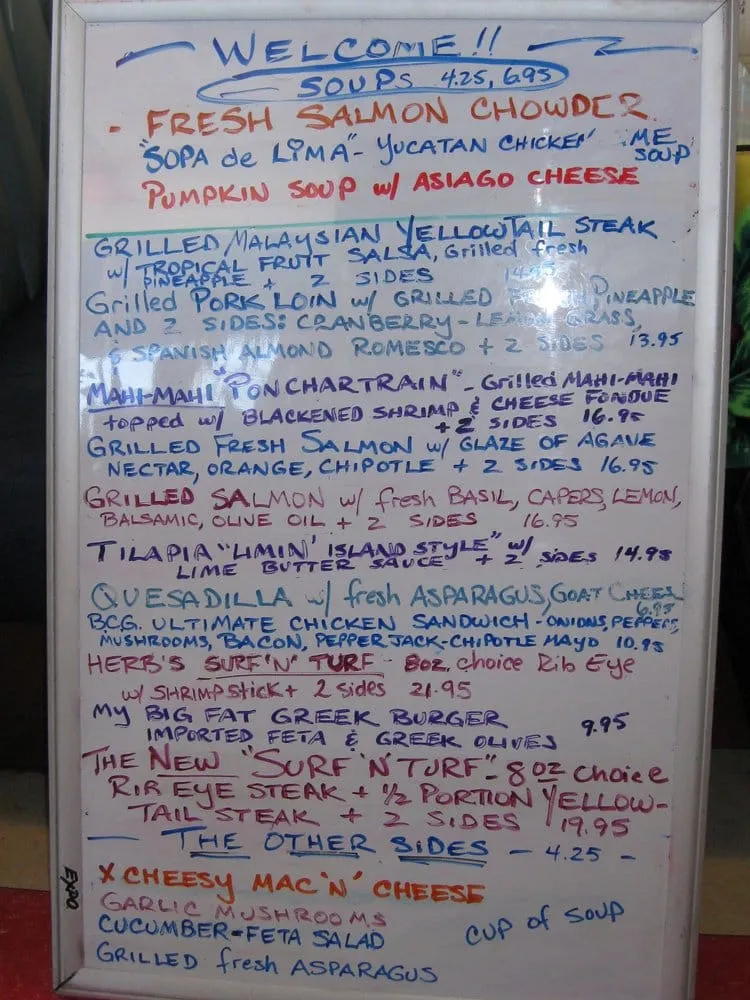 WELCOME!!
SOUPS 4.25, 6.95
- FRESH SALMON CHOWDER
"SOPA de LIMA" - YUCATAN CHICKEN LIME SOUP
PUMPKIN SOUP w/ ASIAGO CHEESE
GRILLED MALAYSIAN YELLOWTAIL STEAK
w/ TROPICAL FRUIT SALSA, Grilled fresh
PINEAPPLE + 2 SIDES
Grilled PORK LOIN w/ GRILLED FRESH PINEAPPLE
AND 2 SIDES: CRANBERRY-LEMON GRASS,
& SPANISH ALMOND ROMESCO + 2 SIDES 13.95
MAHI-MAHI "PONCHARTRAIN" - Grilled MAHI-MAHI
topped w/ BLACKENED SHRIMP & CHEESE FONDUE
+ 2 SIDES 16.95
GRILLED FRESH SALMON w/ GLAZE OF AGAVE
NECTAR, ORANGE, CHIPOTLE + 2 SIDES 16.95
GRILLED SALMON w/ fresh BASIL, CAPERS, LEMON,
BALSAMIC, OLIVE OIL + 2 SIDES 16.95
TILAPIA "LIMIN' ISLAND STYLE" w/
LIME BUTTER SAUCE + 2 SIDES 14.95
QUESADILLA w/ fresh ASPARAGUS, GOAT CHEES
6.95
BCG. ULTIMATE CHICKEN SANDWICH - ONIONS, PEPPERS,
MUSHROOMS, BACON, PEPPER JACK-CHIPOTLE MAYO 10.95
HERB'S SURF 'N' TURF - 8oz. choice Rib Eye
w/ SHRIMP stick + 2 sides 21.95
MY BIG FAT GREEK BURGER
IMPORTED FETA & GREEK OLIVES 9.95
THE NEW "SURF 'N' TURF" - 8 oz choice
RIB EYE STEAK + 1/2 PORTION YELLOW-
TAIL STEAK + 2 SIDES 19.95
- THE OTHER SIDES - 4.25 -
X CHEESY MAC 'N' CHEESE
GARLIC MUSHROOMS
CUCUMBER-FETA SALAD
CUP of SOUP
GRILLED fresh ASPARAGUS
EXPO